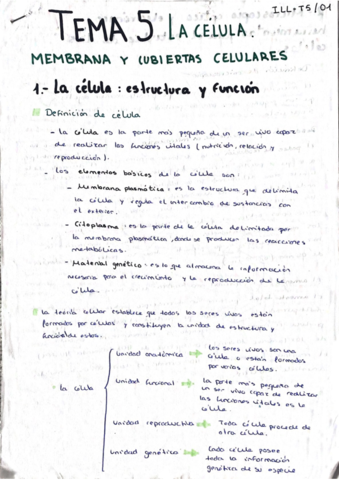 ILL-T5/01
TEMA 5. LA CÉLULA.
MEMBRANA Y CUBIERTAS CELULARES
1.- La célula: estructura y función
Definición de célula
- La célula es la parte más pequeña de un ser vivo capaz
de realizar las funciones vitales (nutrición, relación y
reproducción).
- Los elementos básicos de la célula son:
- Membrana plasmática: es la estructura que delimita
la célula y regula el intercambio de sustancias con
el exterior.
- Citoplasma: es la parte de la célula delimitada por
la membrana plasmática, donde se producen las reacciones
metabólicas.
- Material genético: es lo que almacena la información
necesaria para el crecimiento y la reproducción de la
célula.
La teoría celular establece que todos los seres vivos están
formados por células y constituyen la unidad de estructura y
función de estos.
La célula
Unidad anatómica
Los seres vivos son una
célula o están formados
por varias células.
Unidad funcional
La parte más pequeña de
un ser vivo capaz de realizar
las funciones vitales es la
célula.
Unidad reproductiva
Toda célula procede de
otra célula.
Unidad genética
Cada célula posee
toda la información
genética de su especie